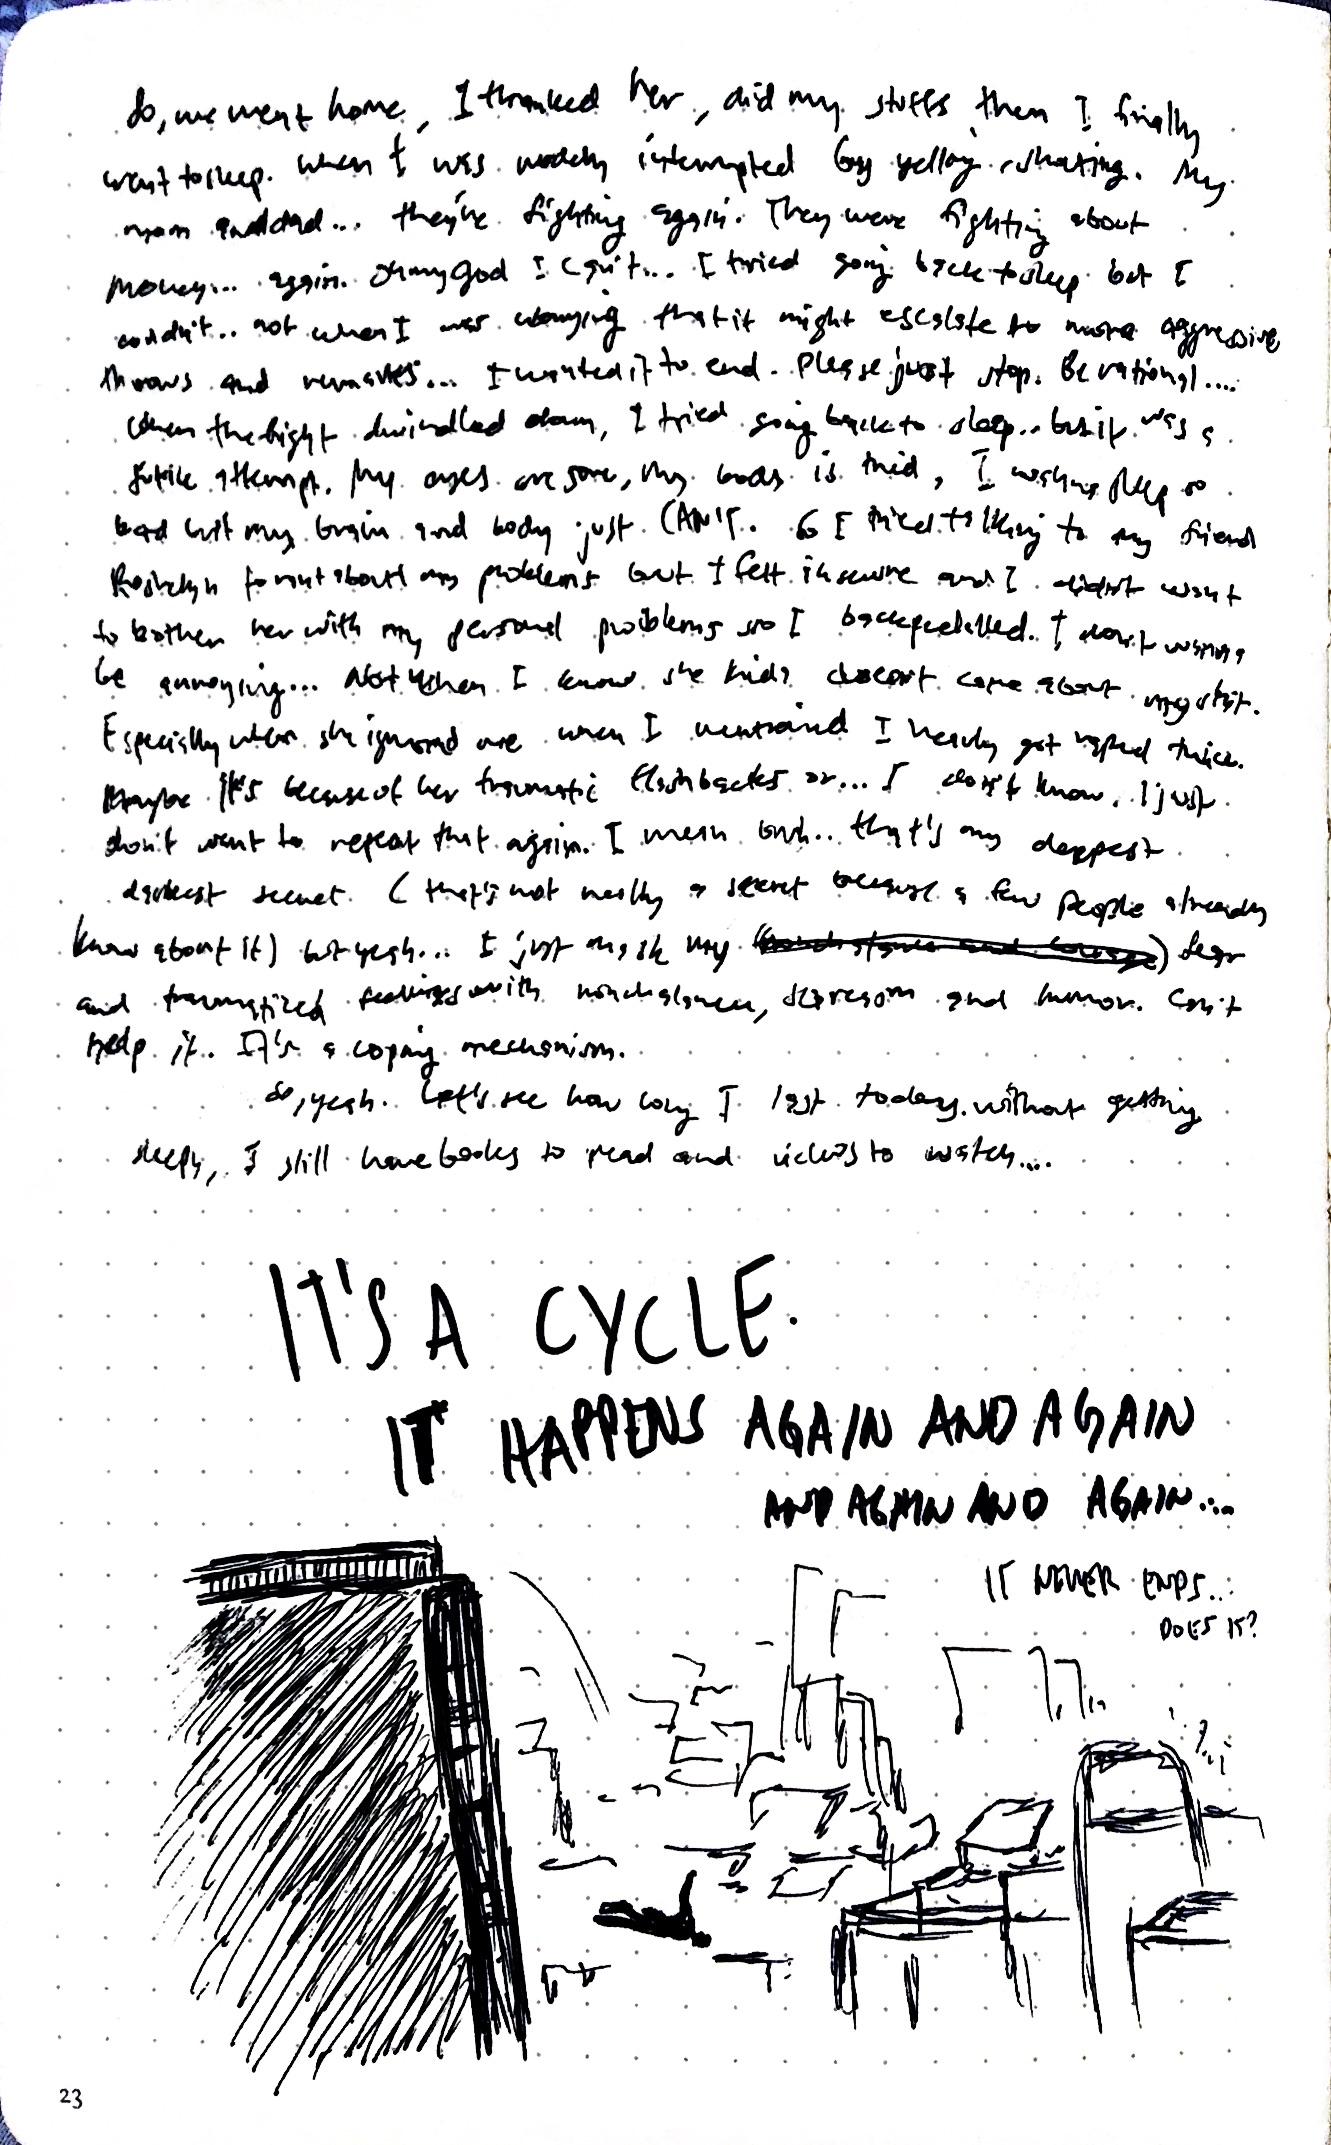 So, we went home, I thanked her, did my stuffs then I finally
went to sleep. When I was rudely interrupted by yelling, shouting. My
mom and dad... they're fighting again. They were fighting about
money... again. Oh my God I can't... I tried going back to sleep but I
couldn't... not when I was worrying that it might escalate to more aggressive
throws and remarks... I wanted it to end. Please just stop. Be rational....
When the fight dwindled down, I tried going back to sleep.. but it was a
futile attempt. My eyes are sore, my body is tired, I wanna sleep so
bad but my brain and body just CAN'T. So I tried talking to my friend
to vent about my problems but I felt insecure and I didn't want
to bother her with my personal problems so I backpedalled. I don't wanna
be annoying... Not when I know she kinda doesn't care about my shit.
Especially when she ignored me when I mentioned I nearly got raped twice.
Maybe it's because of her traumatic flashbacks or... I don't know. I just
don't want to repeat that again. I mean bruh.. that's my deepest
darkest secret. (that's not really a secret because a few people already
know about it) but yeah... I just mask my (nonchalance and ) fear
and traumatized feelings with nonchalance, sarcasm and humor. Can't
help it. It's a coping mechanism.
So, yeah. Let's see how long I last today without getting
sleepy, I still have books to read and videos to watch....
IT'S A CYCLE.
IT HAPPENS AGAIN AND AGAIN
AND AGAIN AND AGAIN...
IT NEVER ENDS...
DOES IT?
23